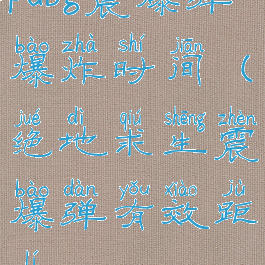 pubg震爆弹
bào zhà shí jiān
爆炸时间（
jué dì qiú shēng zhèn
绝地求生震
bào dàn yǒu xiào jù
爆弹有效距
lí